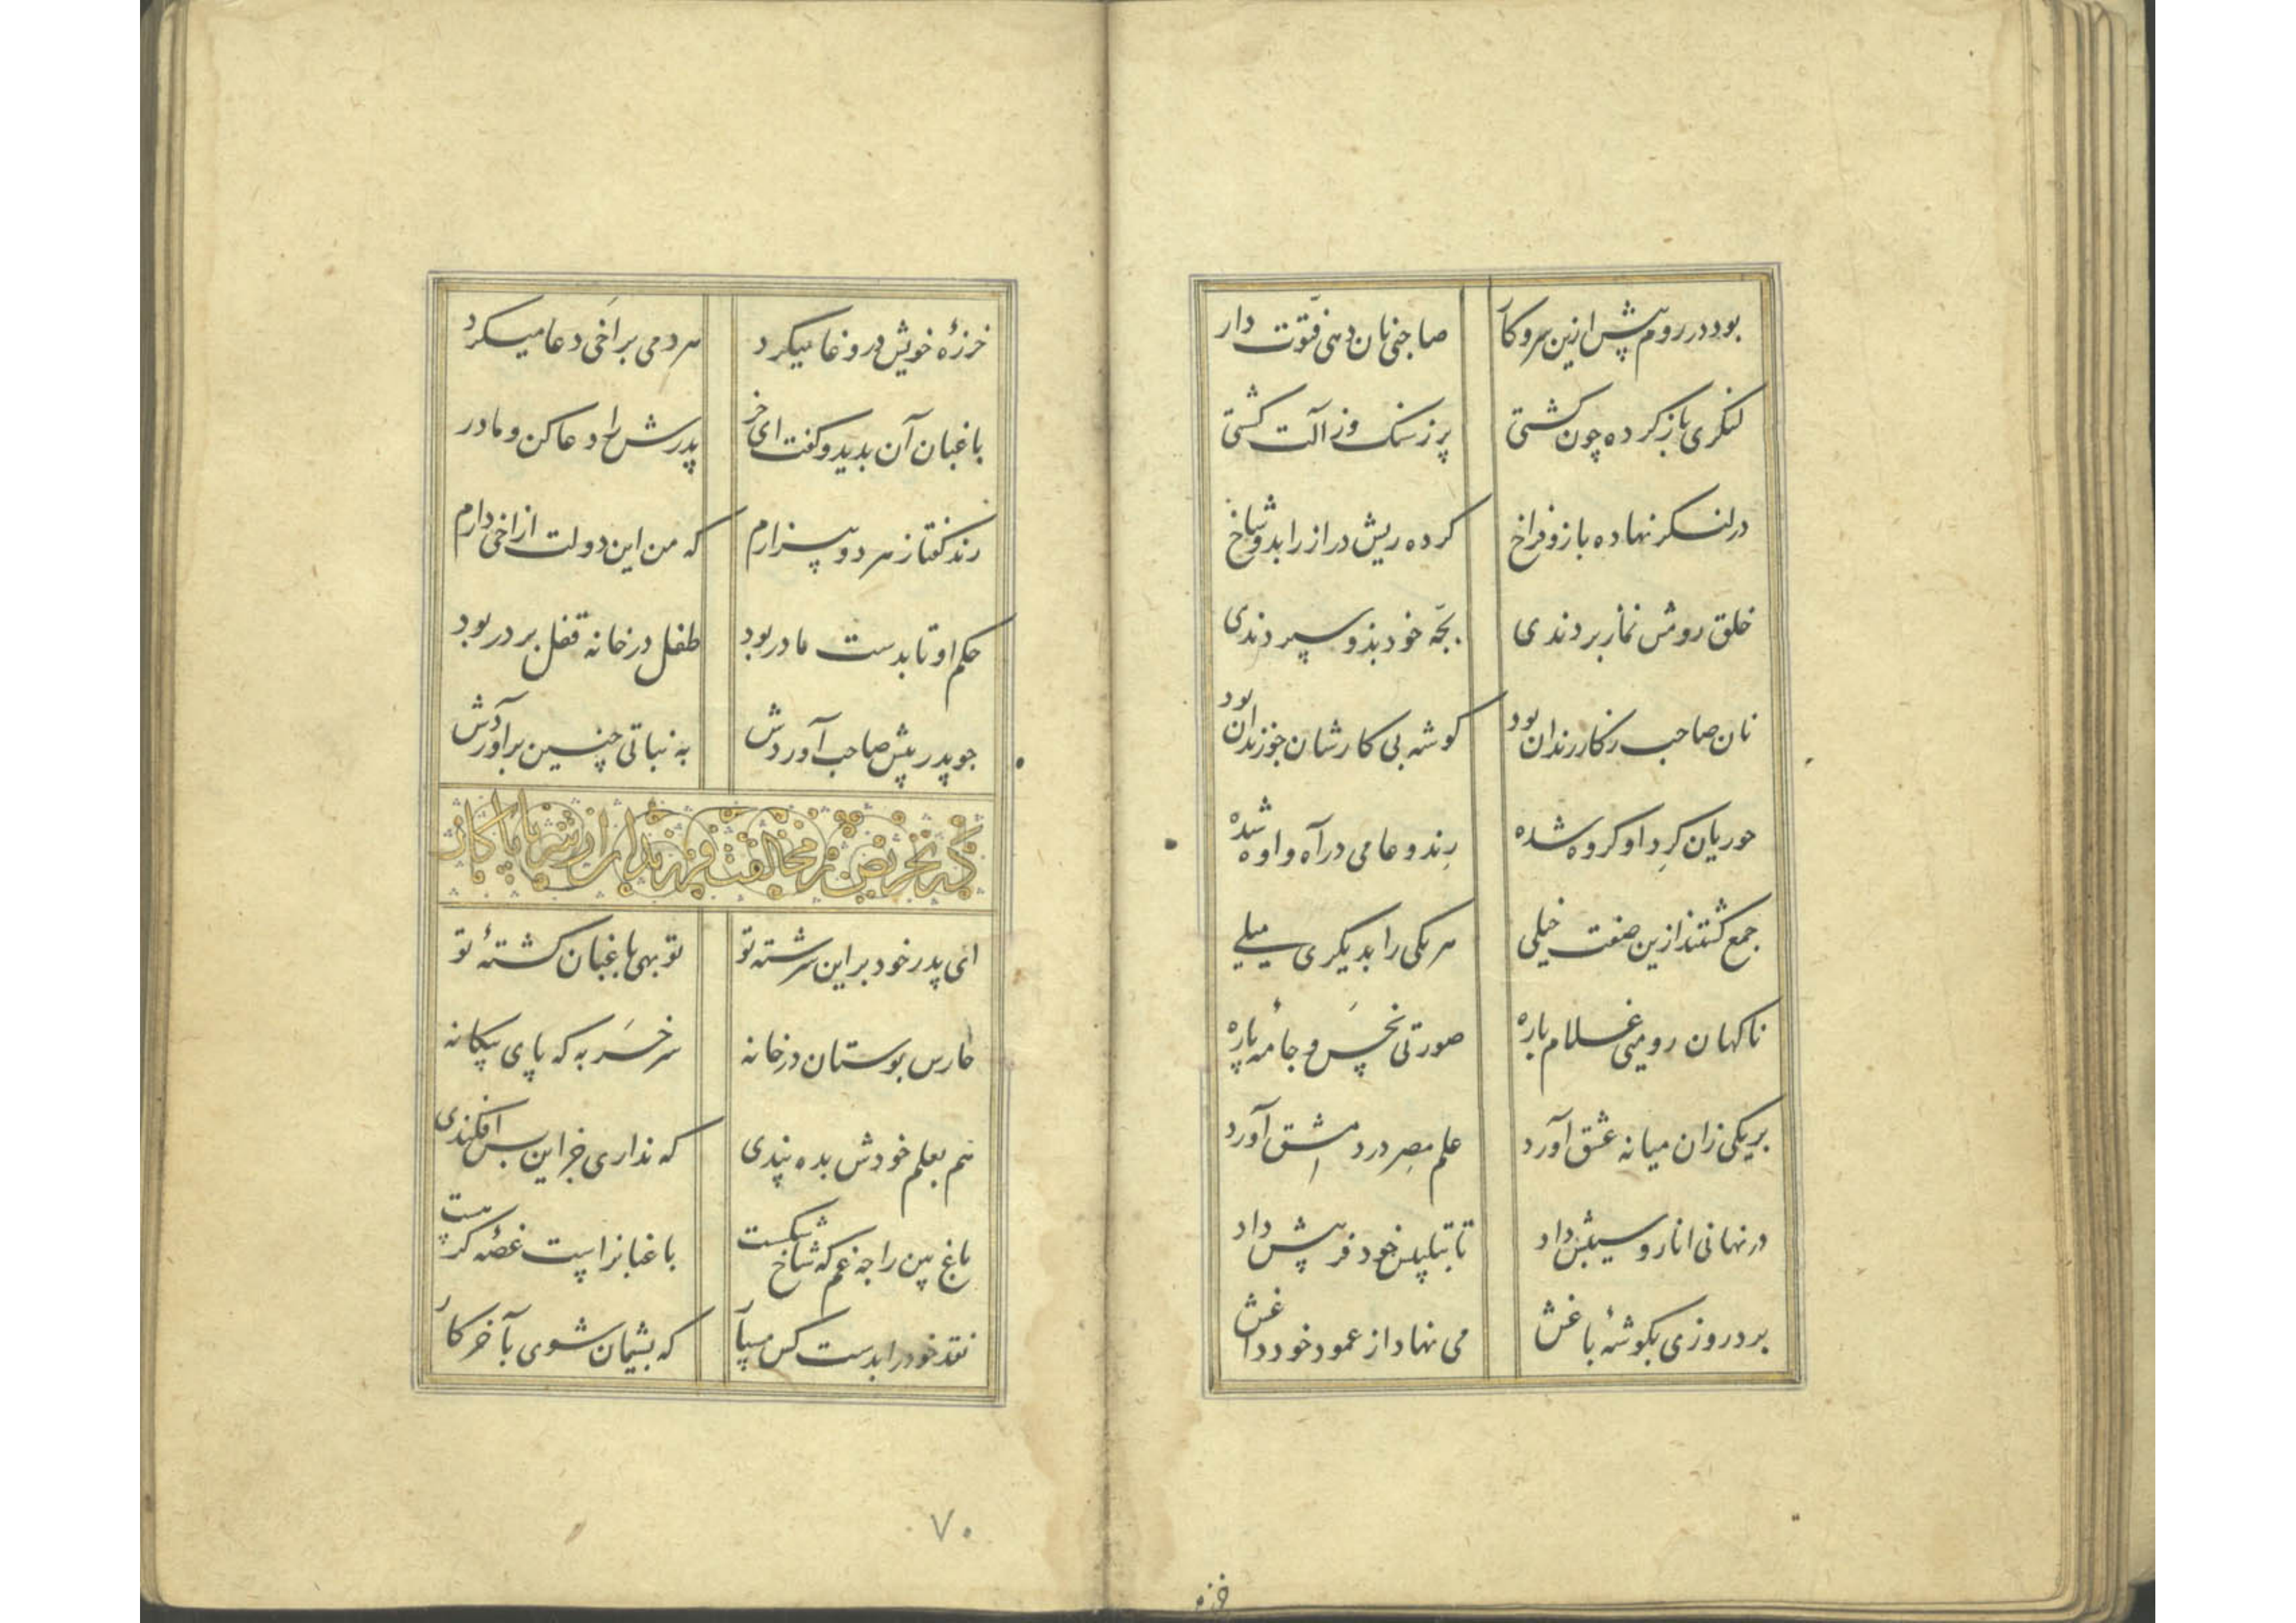 بود در روم پیش ازین سر و کار صاحبی نان دهی فتوّت دار
لنگری باز کرده چون کشتی پر ز سنگ و ز آلت کشتی
در لنگر نهاده باز و فراخ کرده ریش دراز را بدو شاخ
خلق رویش نماز بردندی بچّه خود بذو سپردندی
نان صاحب ز کار رندان بود گوشه بی کارشان چو زندان بود
حوریان گردِ او گروه شده رند و عامی در آه و اوه شده
جمع گشتند ازین صفت خیلی هر یکی را بدیگری میلی
ناگهان رومیی غلام باره صورتی نحس و جامهٔ پاره
بر یکی زان میانه عشق آورد علم مصر در دمشق آورد
در نهانی انار و سیبش داد تا بتلبیس خود فریبش داد
برد روزی بگوشهٔ باغش می نهاد از عمود خود داغش
خرزه
خرزهٔ خویش در وغا میکرد هر دمی بر اخی دعا میکرد
باغبان آن بدید و گفت ای خر پدرش را دعا کن و مادر
رند گفتا ز هر دو بیزارم که من این دولت از اخی دارم
حکم او تا بدست مادر بود طفل در خانه قفل بر در بود
چو پدر پیش صاحب آوردش به نباتی چنین برآوردش
ای پدر خود بر این سرشته تو تو بهی باغبان کشتهٔ تو
حارس بوستان در خانه سر خر به که پای بیگانه
هم بعلم خودش بده پندی که نداری جز این پس افکندی
باغ بین را چه غم که شاخ شکست باغبانراست غصّه گر هست
نقد خود را بدست کس مسپار که پشیمان شوی بآخر کار
۷۰